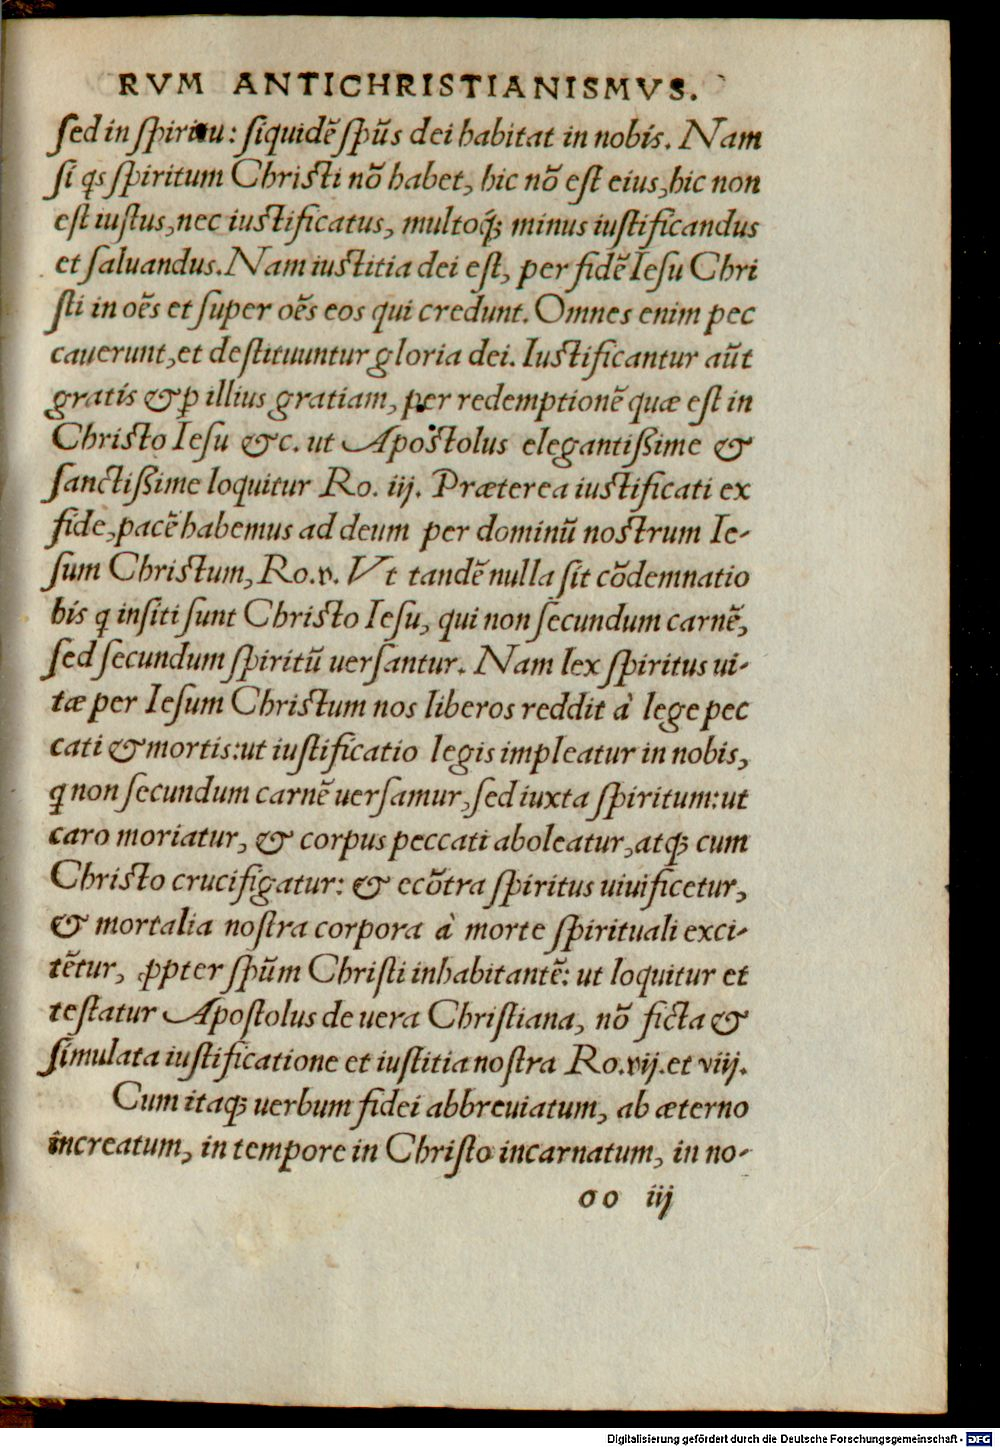 RVM ANTICHRISTIANISMVS.
sed in spiritu: siquidē spūs dei habitat in nobis. Nam
si qs spiritum Christi nō habet, hic nō est eius, hic non
est iustus, nec iustificatus, multoq́; minus iustificandus
et saluandus. Nam iustitia dei est, per fidē Iesu Chri
sti in oēs et super oēs eos qui credunt. Omnes enim pec
cauerunt, et destituuntur gloria dei. Iustificantur aūt
gratis & ꝑ illius gratiam, per redemptionē quæ est in
Christo Iesu &c. ut Apostolus elegantißime &
sanctißime loquitur Ro. iij. Præterea iustificati ex
fide, pacē habemus ad deum per dominū nostrum Ie-
sum Christum, Ro.v. Vt tandē nulla sit cōdemnatio
his q insiti sunt Christo Iesu, qui non secundum carnē,
sed secundum spiritū uersantur. Nam lex spiritus ui-
tæ per Iesum Christum nos liberos reddit à lege pec
cati & mortis: ut iustificatio legis impleatur in nobis,
q non secundum carnē uersamur, sed iuxta spiritum: ut
caro moriatur, & corpus peccati aboleatur, atq; cum
Christo crucifigatur: & ecōtra spiritus uiuificetur,
& mortalia nostra corpora à morte spirituali exci-
tētur, ꝓpter spūm Christi inhabitantē: ut loquitur et
testatur Apostolus de uera Christiana, nō ficta &
simulata iustificatione et iustitia nostra Ro.vij. et viij.
Cum itaq; uerbum fidei abbreuiatum, ab æterno
increatum, in tempore in Christo incarnatum, in no-
oo iij
Digitalisierung gefördert durch die Deutsche Forschungsgemeinschaft - DFG